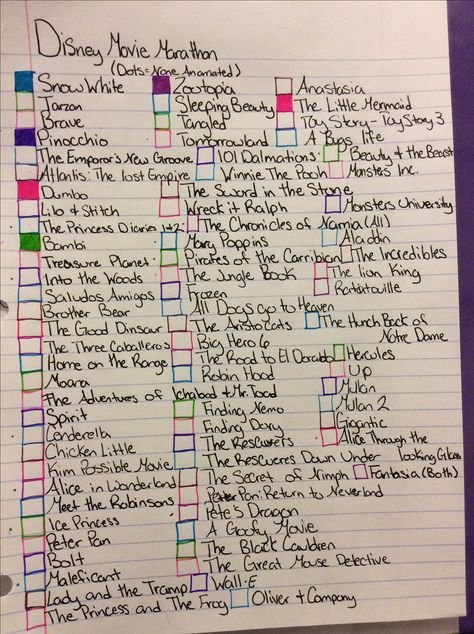 Disney Movie Marathon
(Dots = None Anamated)
Snow White Zootopia Anastasia
Tarzan Sleeping Beauty The Little Mermaid
Brave Tangled Toy Story - Toy Story 3
Pinocchio Tomorrowland A Bugs life
The Emporor's New Groove 101 Dalmations Beauty & the Beast
Atlantis: The lost Empire Winnie The Pooh Monstes Inc.
Dumbo The Sword in the Stone
Lilo & Stitch Wreck it Ralph Monsters University
The Princess Diaries 1+2 The Chronicles of Narnia (All)
Bambi Mary Poppins Aladdin
Treasure Planet Pirates of the Carribian The Incredibles
Into the Woods The Jungle Book The lion King
Saludos Amigos Frozen Ratatouille
Brother Bear All Dogs go to Heaven
The Good Dinsaur The Aristocats The Hunch Back of
The Three Caballeros Big Hero 6 Notre Dame
Home on the Range The Road to El Dorado Hercules
Moana Robin Hood Up
The Adventures of Ichabod + Mr. Toad Mulan
Spirit Finding Nemo Mulan 2
Cenderella Finding Dory Gigantic
Chicken Little The Rescuers Alice Through the
Kim Possible Movie The Rescueres Down Under looking Glass
Alice in Wonderland The Secret of Nimph Fantasia (Both)
Meet the Robinsons Peter Pan: Return to Neverland
Ice Princess Pete's Dragon
Peter Pan A Goofy Movie
Bolt The Black Cauldren
Maleficant The Great Mouse Detective
Lady and the Tramp Wall-E
The Princess and The Frog Oliver + Company